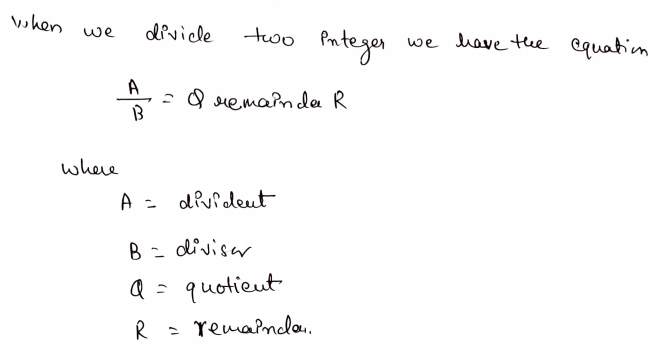 when we divide two integer we have the equation
A/B = Q remainder R
where
A = divident
B = divisor
Q = quotient
R = remainder.